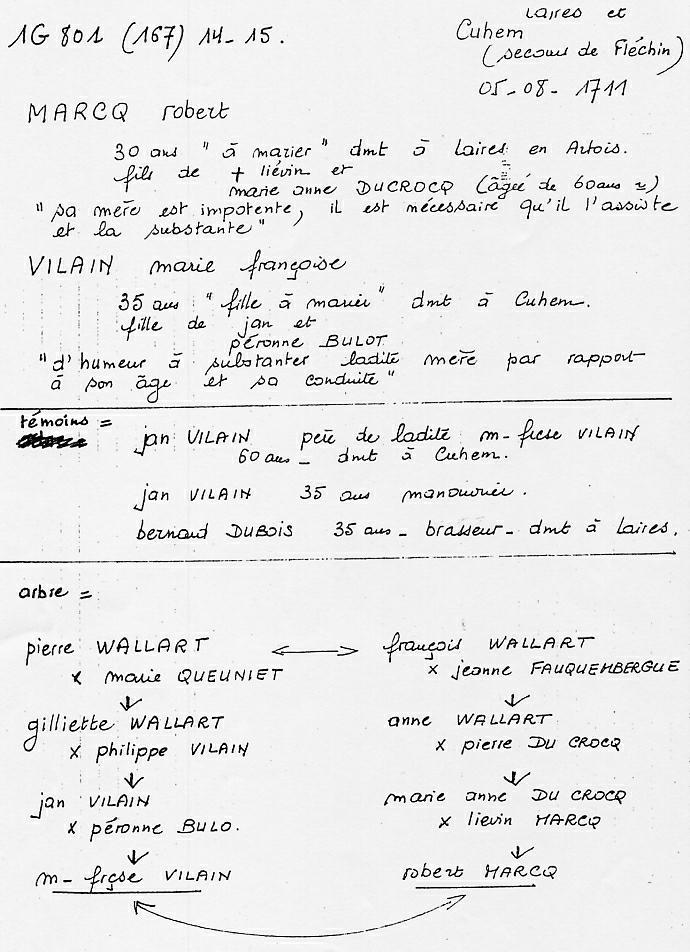 1G 801 (167) 14-15.
Laires et
Cuhem
(secours de Fléchin)
05-08-1711
MARCQ robert
30 ans "à marier" dmt à Laires en Artois.
fils de + liévin et
marie anne DUCROCQ (âgée de 60 ans
"sa mère est impotente, il est nécessaire qu'il l'assiste
et la substante"
VILAIN marie françoise
35 ans "fille à marier" dmt à Cuhem.
fille de jan et
péronne BULOT
"d'humeur à substanter ladite mère par rapport
à son âge et sa conduite"
témoins =
jan VILAIN père de ladite m-fcse VILAIN
60 ans - dmt à Cuhem.
jan VILAIN 35 ans manouvrier.
bernard DUBOIS 35 ans - brasseur - dmt à Laires.
arbre =
pierre WALLART ↔ françois WALLART
x marie QUEUNIET x jeanne FAUQUEMBERGUE
↓ ↓
gilliette WALLART anne WALLART
x philippe VILAIN x pierre DU CROCQ
↓ ↓
jan VILAIN marie anne DU CROCQ
x péronne BULO. x lievin MARCQ
↓ ↓
m- frçse VILAIN robert MARCQ